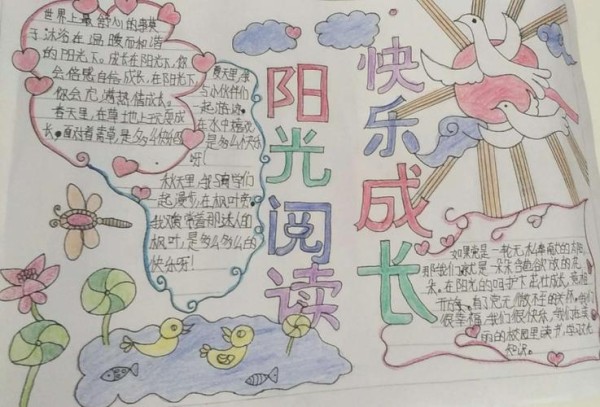 世界上最舒心的事莫
于沐浴在温暖而和谐
的阳光下。成长在阳光下，你
会倍感自信成长，在阳光下，
你会充满热情成长。
春天里，在草地上玩耍成
长。直对着青草，是多么快乐呀
夏天里，
与小伙伴们
一起游泳，
在水中嬉戏
是多么快乐
呀！
秋天里，与同学们
一起漫步，在枫叶旁，
我欣赏着那迷人的
枫叶，是多么多么的
快乐呀！
阳光阅读
快乐成长
如果党是一轮无私奉献的太阳，
那我们就是一朵朵含苞欲放的花
朵，在阳光的呵护下茁壮成长，竞相
开放，有了党无微不至的关怀，我们
很幸福，我们很快乐，我们在美
丽的校园里读书，学习文化
知识。